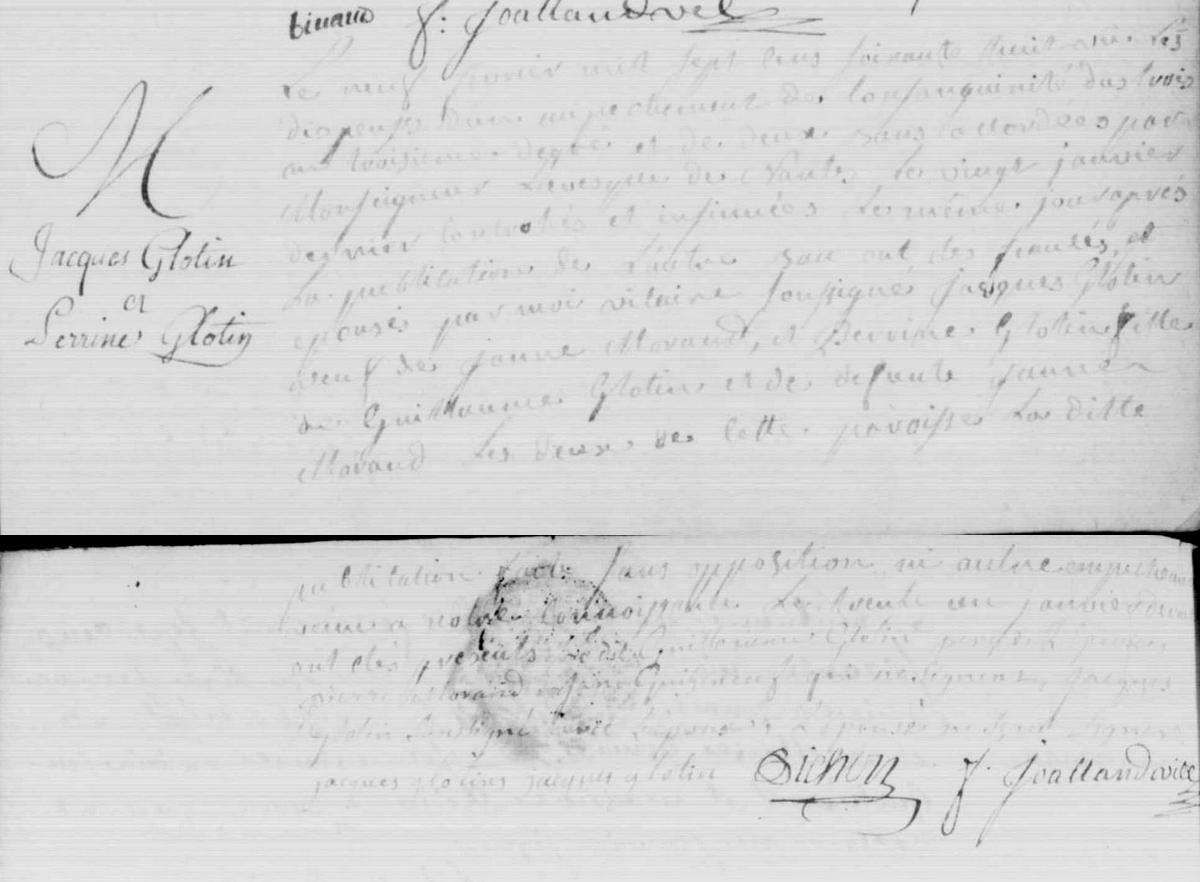 binaud f. Joallandvic
M
Jacques Glotin
et
Perrine Glotin
Le neuf fevrier mil sept cens soixante huit avec les
dispenses d'un empechement de consanguinité du trois
au troisieme degré et de deux bans accordées par
Monseigneur L'evesque de Nantes Le vingt janvier
dernier controlés et insinuées Le même jour après
La publication de l'autre ban ont été fiancés et
epousés par moi vicaire soussigné Jacques Glotin
veuf de Janne Morand, et Perrine Glotin fille
de Guillaume Glotin et de defunte Janne
Morand Les deux de cette paroisse La ditte
publication faite sans opposition ni autre empechement
venu a notre connoissance Le trente un janvier
ont etés presents Guillaume Glotin
pierre Morand Jan qui ne signent, Jacques
Glotin L'epousée ne signer
jacques glotin jaques glotin Bichon f. Joallandvic